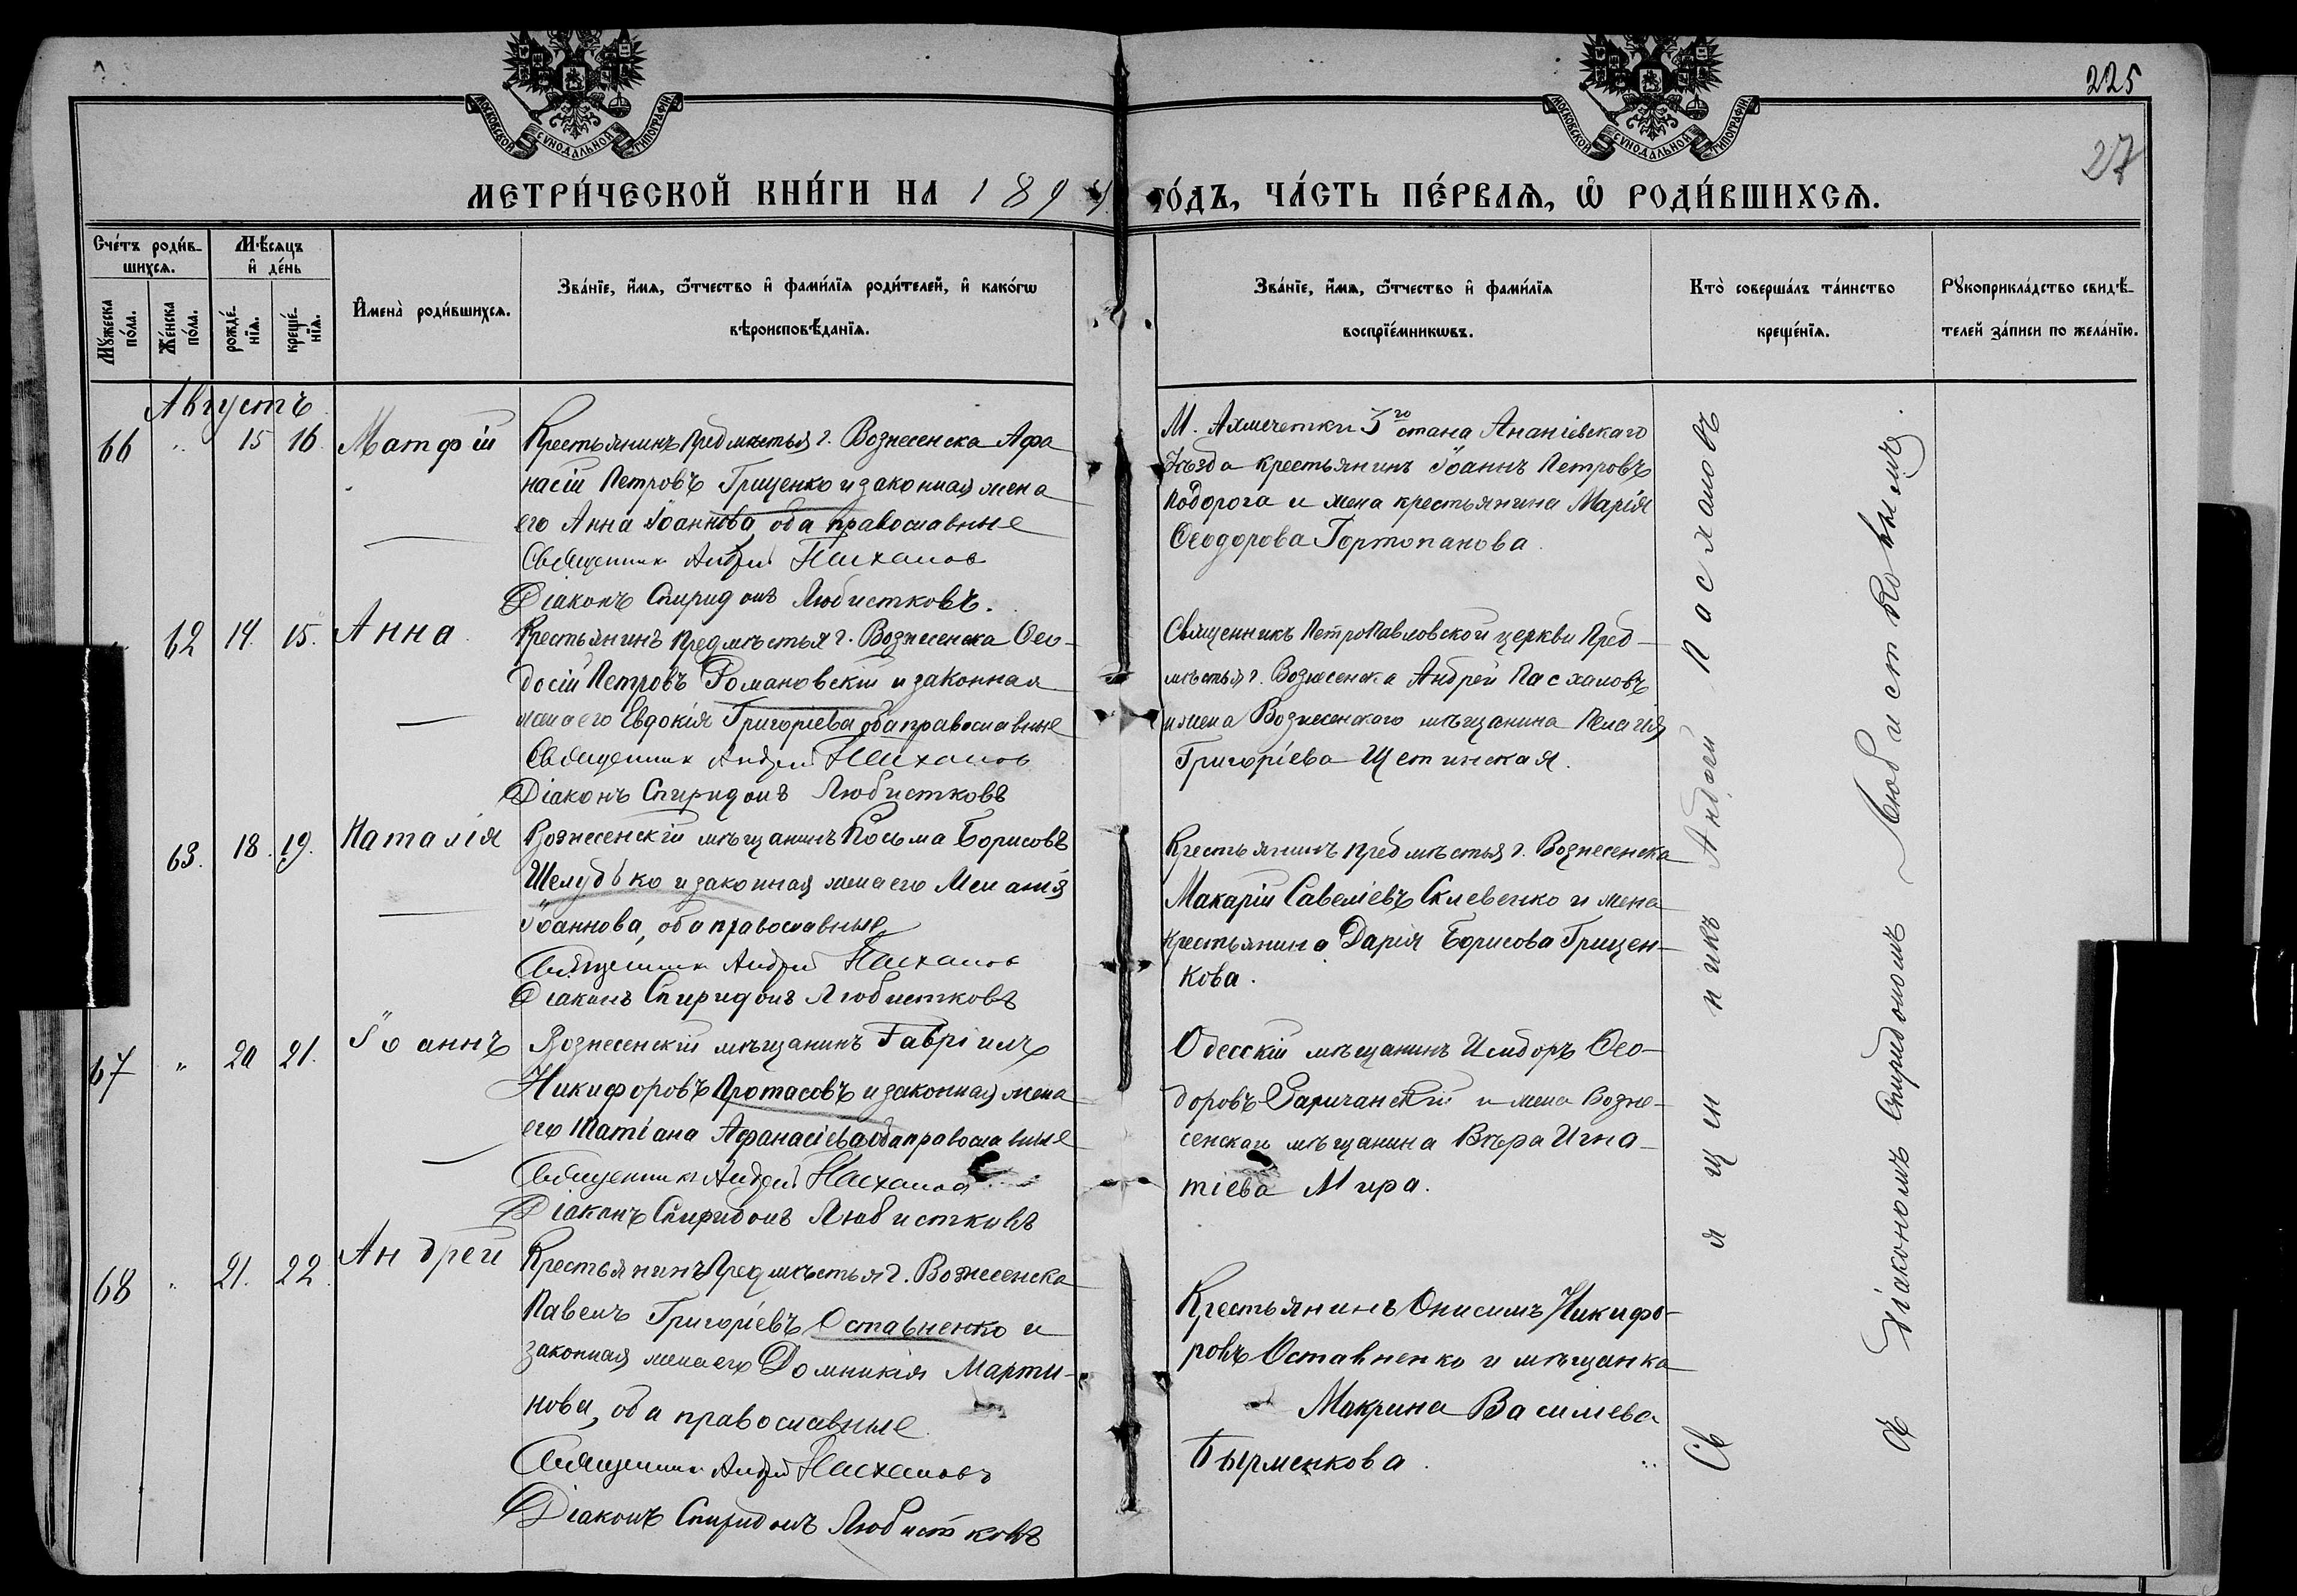 МОСКОВСКОЙ СѴНОДАЛЬНОЙ ТИПОГРАФІИ
МОСКОВСКОЙ СѴНОДАЛЬНОЙ ТИПОГРАФІИ
225
27
МЕТРИ́ЧЕСКОЙ КНИ́ГИ НА 1894 ГО́ДЪ, ЧА́СТЬ ПЕ́РВАѦ, Ѡ҆ РОДИ́ВШИХСѦ.
Сче́тъ роди́в-
шихсѧ.
Мꙋ́жеска по́ла.
Же́нска по́ла.
Мѣ́сѧцъ
и҆ де́нь
рожде́-
нїѧ.
креще́-
нїѧ.
И҆мена̀ роди́вшихсѧ.
Зва́нїе, и҆́мѧ, ѻ҆́тчество и҆ фами́лїѧ роди́телей, и҆ како́гѡ
вѣроисповѣ́данїѧ.
Зва́нїе, и҆́мѧ, ѻ҆́тчество и҆ фами́лїѧ
воспрїе́мникѡвъ.
Кто̀ соверша́лъ та́инство
креще́нїѧ.
Рꙋкоприкла́дство свидѣ́-
телей за́писи по жела́нїю.
Августъ
66 " 15 16 Матфій
Крестьянинъ Предмѣстья г. Вознесенска Афа
насій Петровъ Гриценко и законная жена
его Анна Іоаннова, оба православные
Священник Андрей Пасхалов
Діаконъ Спиридонъ Любистковъ.
М. Ахмечетки 5го стана Ананіевскаго
Уѣзда крестьянинъ Іоаннъ Петровъ
Подорога и жена крестьянина Марія
Ѳеодорова Гортопанова.
" 62 14. 15. Анна
Крестьянинъ предмѣстья г. Вознесенска Ѳео-
досій Петровъ Романовскій и законная
жена его Евдокія Григоріева оба православные
Священник Андрей Пасхалов
Діаконъ Спиридонъ Любистковъ
Священникъ Петропавловской церкви Пред-
мѣстья г. Вознесенска Андрей Пасхаловъ
и жена Вознесенскаго мѣщанина Пелагія
Григоріева Щетинская.
63. 18. 19. Наталія
Вознесенскій мѣщанинъ Косьма Борисовъ
Шелудько и законная жена его Меланія
Іоаннова, оба православные
Священник Андрей Пасхалов
Діаконъ Спиридонъ Любистковъ
Крестьянинъ предмѣстья г. Вознесенска
Макарій Савеліевъ Склевенко и жена
крестьянина Дарія Борисова Грицен-
кова.
67 " 20 21. Іоаннъ
Вознесенскій мѣщанинъ Гавріилъ
Никифоровъ Протасовъ и законная жена
его Татіана Афанасіева оба православные
Священник Андрей Пасхалов
Діаконъ Спиридонъ Любистковъ
Одесскій мѣщанинъ Исидоръ Ѳео-
доровъ Заричанскій и жена Возне-
сенскаго мѣщанина Вѣра Игна-
тіева Мира.
68 " 21. 22. Андрей
Крестьянинъ Предмѣстья г. Вознесенска
Павелъ Григоріевъ Оставненко и
законная жена его Домникія Марти-
нова, оба православные
Священник Андрей Пасхаловъ
Діаконъ Спиридонъ Любистковъ
Крестьянинъ Онисимъ Никифо-
ровъ Оставненко и мѣщанка
Макрина Василіева
Бырменкова.
Священникъ Андрей Пасхаловъ
съ Діакономъ Спиридономъ Любистковымъ.